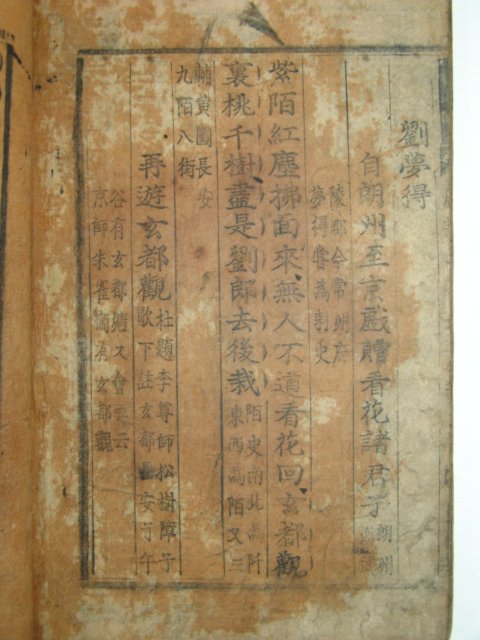 劉夢得
自朗州至京戲贈看花諸君子 朗州
陵郡今常州府
夢得嘗為刺史
紫陌紅塵拂面來無人不道看花回玄都觀
裏桃千樹盡是劉郎去後栽 陌史南北為阡
東西為陌又三
輔黃圖長安
九陌八街
再遊玄都觀 杜題李尊師松樹障子
歌下註玄都 安子午
谷有玄都壇又會要云
京師朱雀街有玄都觀